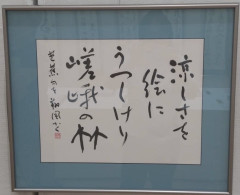 涼しさを
絵に
うつしけり
嵯峨の竹
芭蕉の句